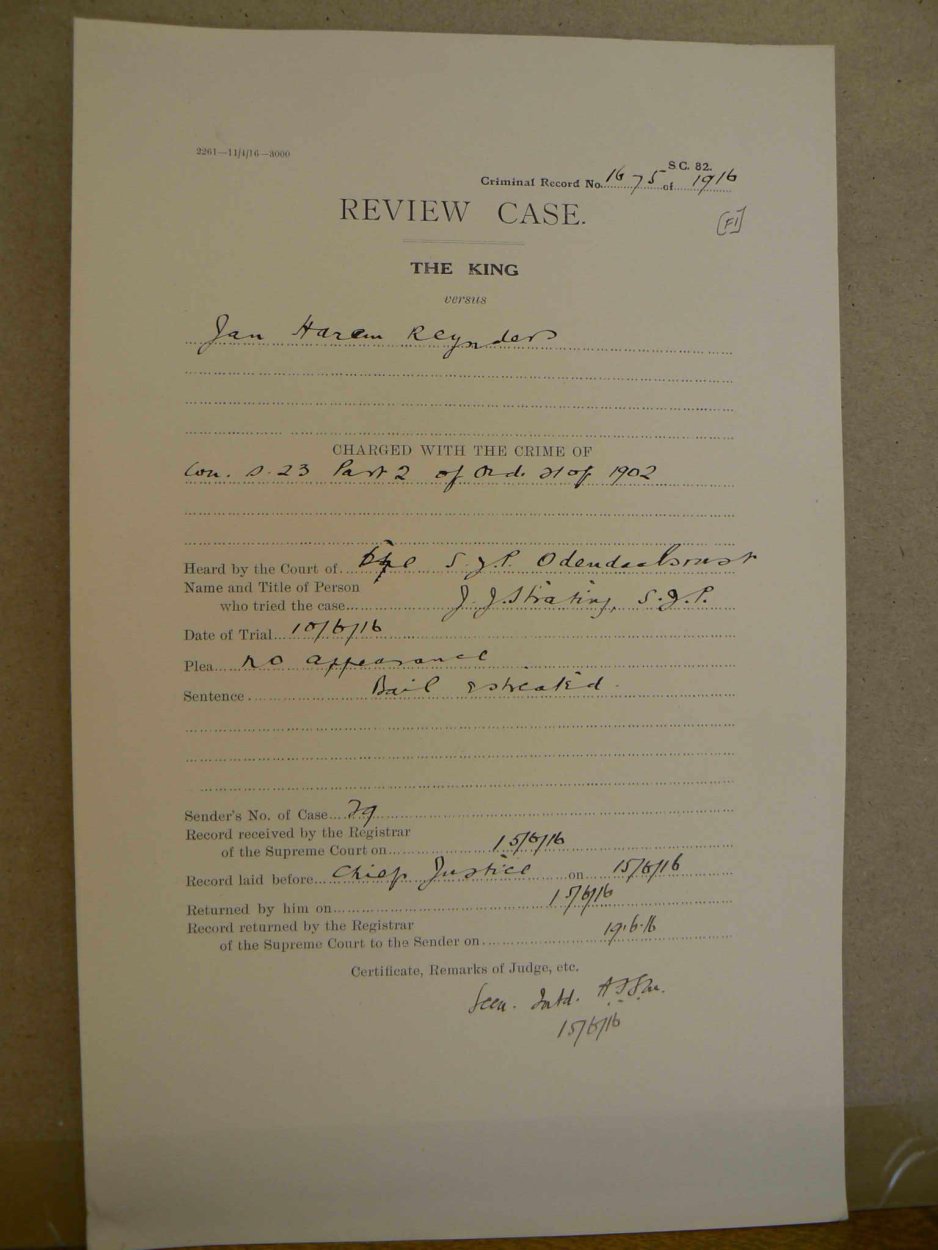 2261—11/4/16—3000
S C. 82.
Criminal Record No. 1675 of 1916
REVIEW CASE.
[F1]
THE KING
versus
Jan Harem Reynders
CHARGED WITH THE CRIME OF
Con. S. 23 Part 2 of Ord. 21 of 1902
Heard by the Court of the S.J.P. Odendaalsrust
Name and Title of Person
who tried the case J. J. Strating, S.J.P.
Date of Trial 10/6/16
Plea no appearance
Sentence Bail estreated.
Sender's No. of Case 29
Record received by the Registrar
of the Supreme Court on 15/6/16
Record laid before Chief Justice on 15/6/16
Returned by him on 15/6/16
Record returned by the Registrar
of the Supreme Court to the Sender on 19.6.16
Certificate, Remarks of Judge, etc.
Seen. Intd.
15/6/16